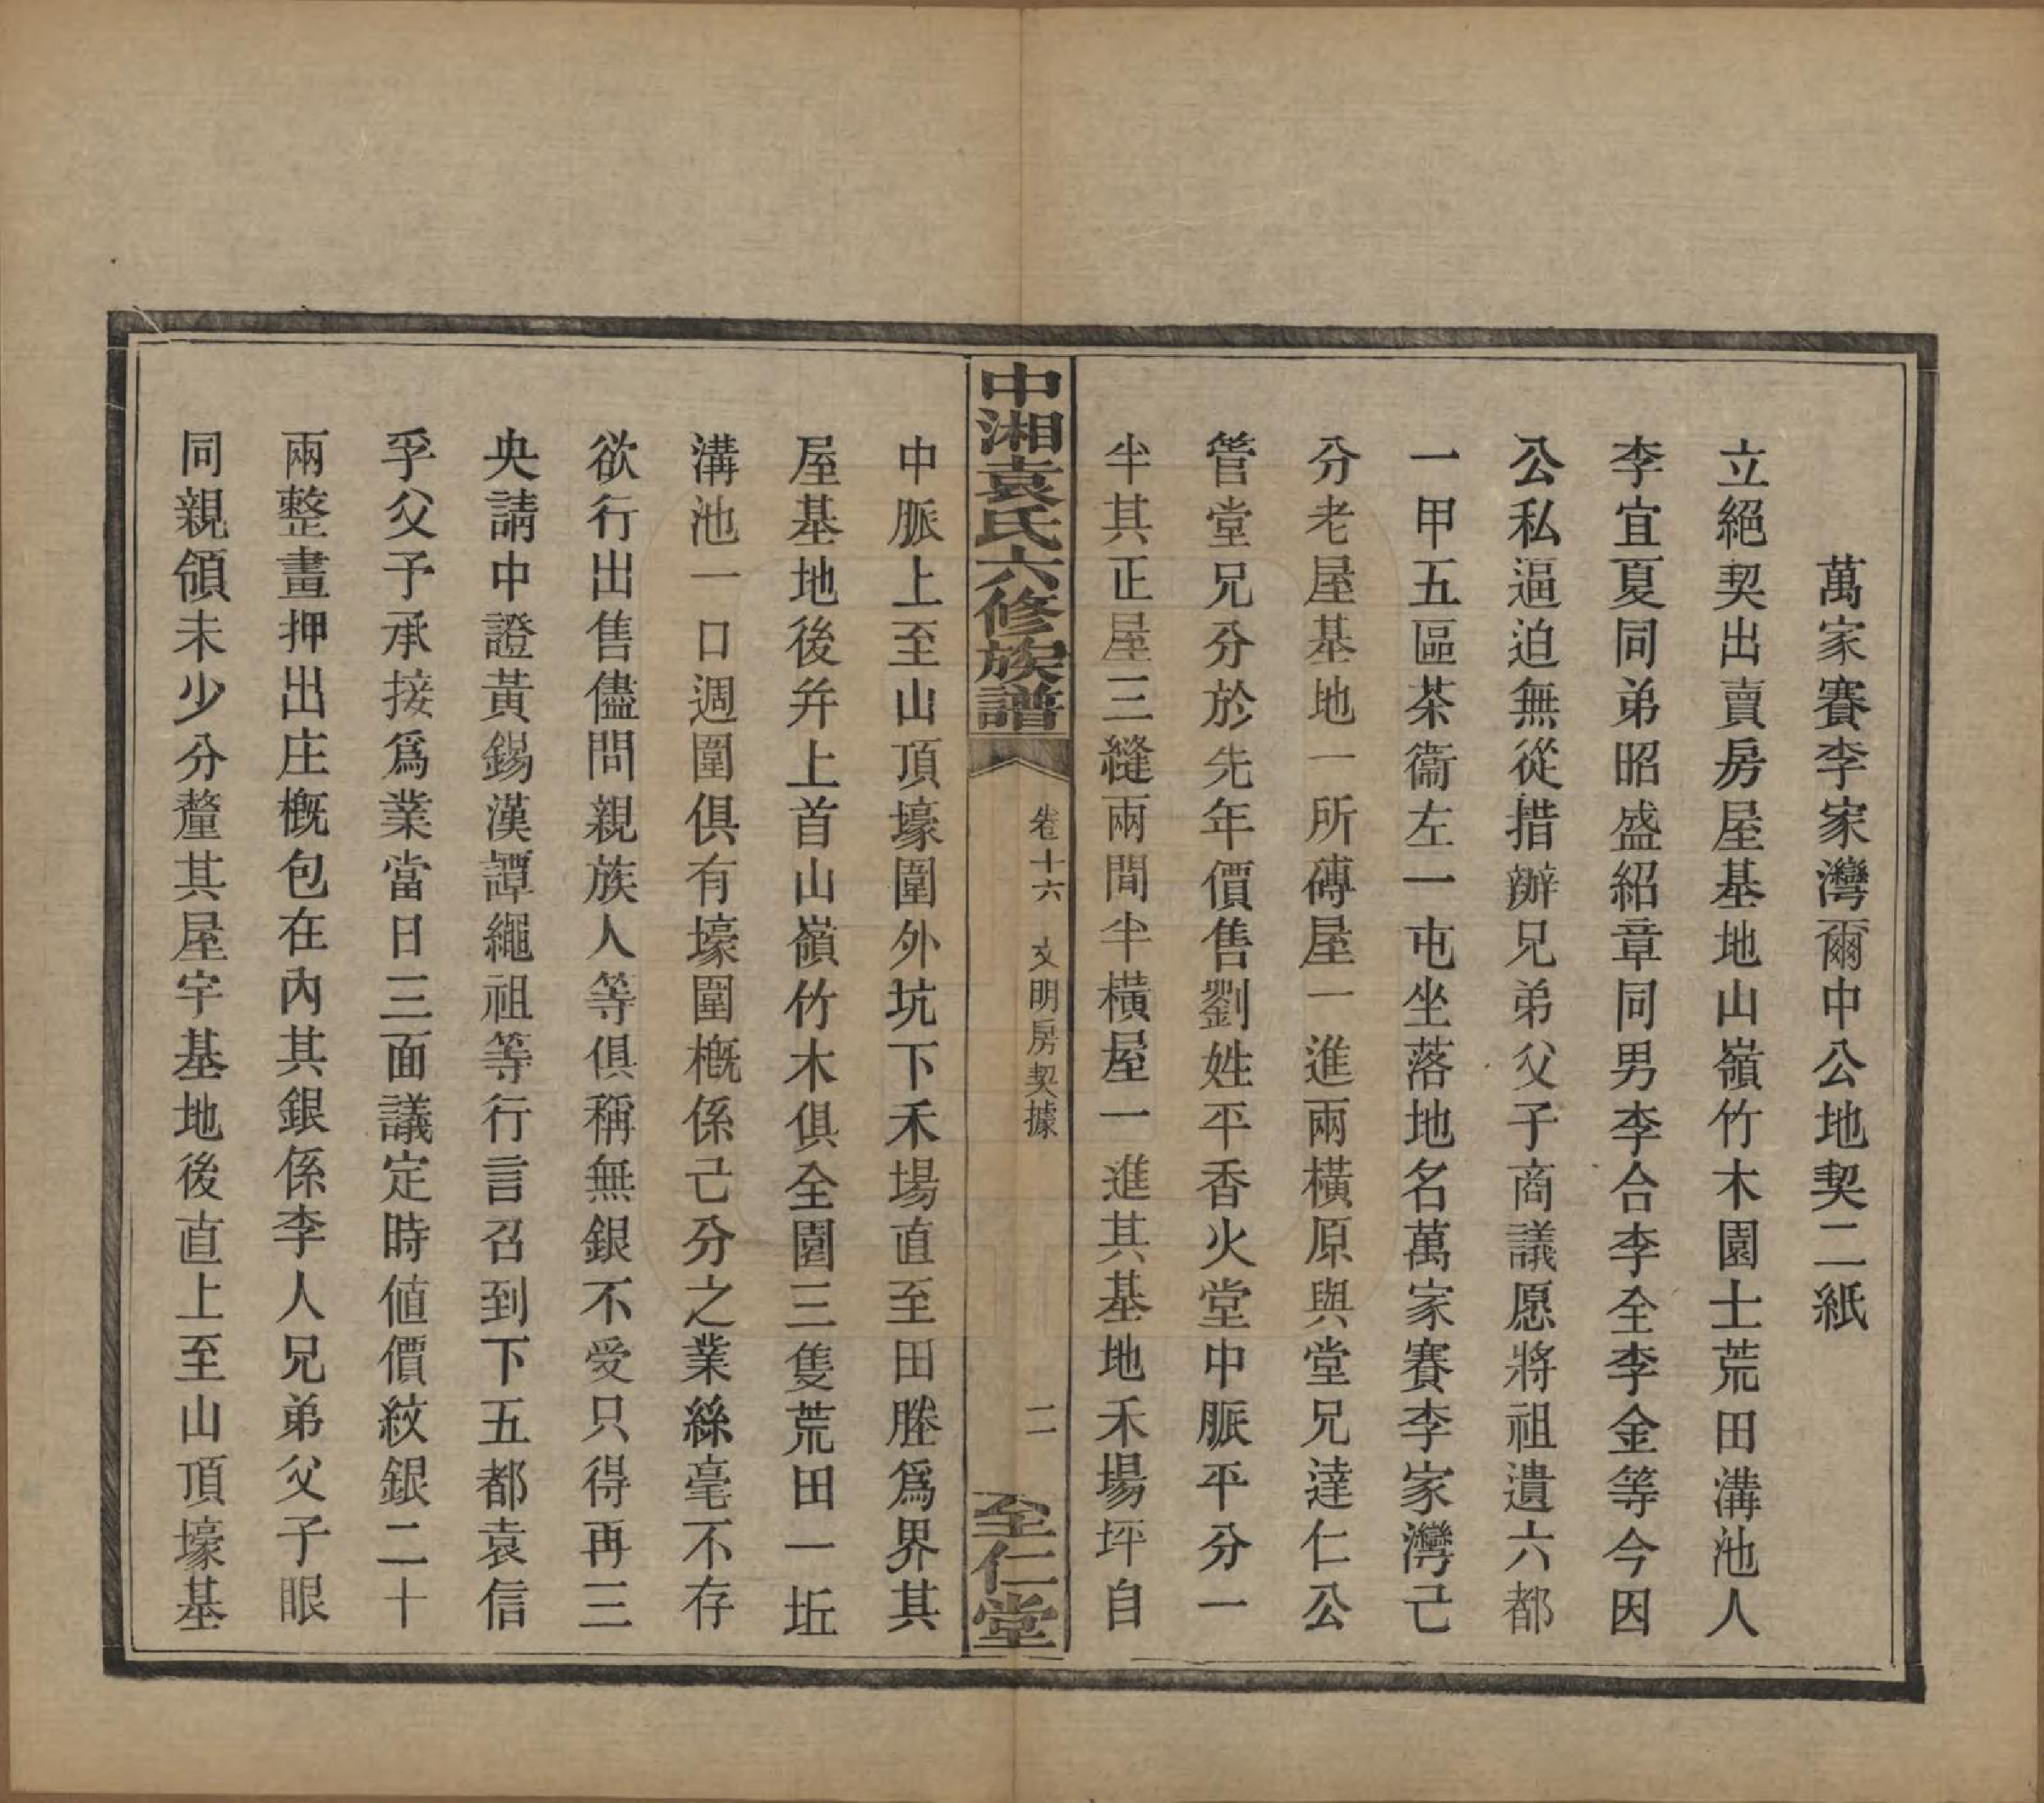 萬家賽李家灣爾中公地契二紙
立絕契出賣房屋基地山嶺竹木園土荒田溝池人
李宜夏同弟昭盛紹章同男李合李全李金等今因
公私逼迫無從措辦兄弟父子商議愿將祖遺六都
一甲五區茶衞左一屯坐落地名萬家賽李家灣己
分老屋基地一所磚屋一進兩橫原與堂兄達仁公
管堂兄分於先年價售劉姓平香火堂中脈平分一
半其正屋三縫兩間半橫屋一進其基地禾場坪自
中湘袁氏六修族譜
卷十六
文明房契據
二
至仁堂
中脈上至山頂壕圍外坑下禾場直至田塍爲界其
屋基地後弁上首山嶺竹木俱全園三隻荒田一坵
溝池一口週圍俱有壕圍概係己分之業絲毫不存
欲行出售儘問親族人等俱稱無銀不受只得再三
央請中證黃錫漢譚繩祖等行言召到下五都袁信
孚父子承接爲業當日三面議定時值價紋銀二十
兩整畫押出庄概包在內其銀係李人兄弟父子眼
同親領未少分釐其屋宇基地後直上至山頂壕基